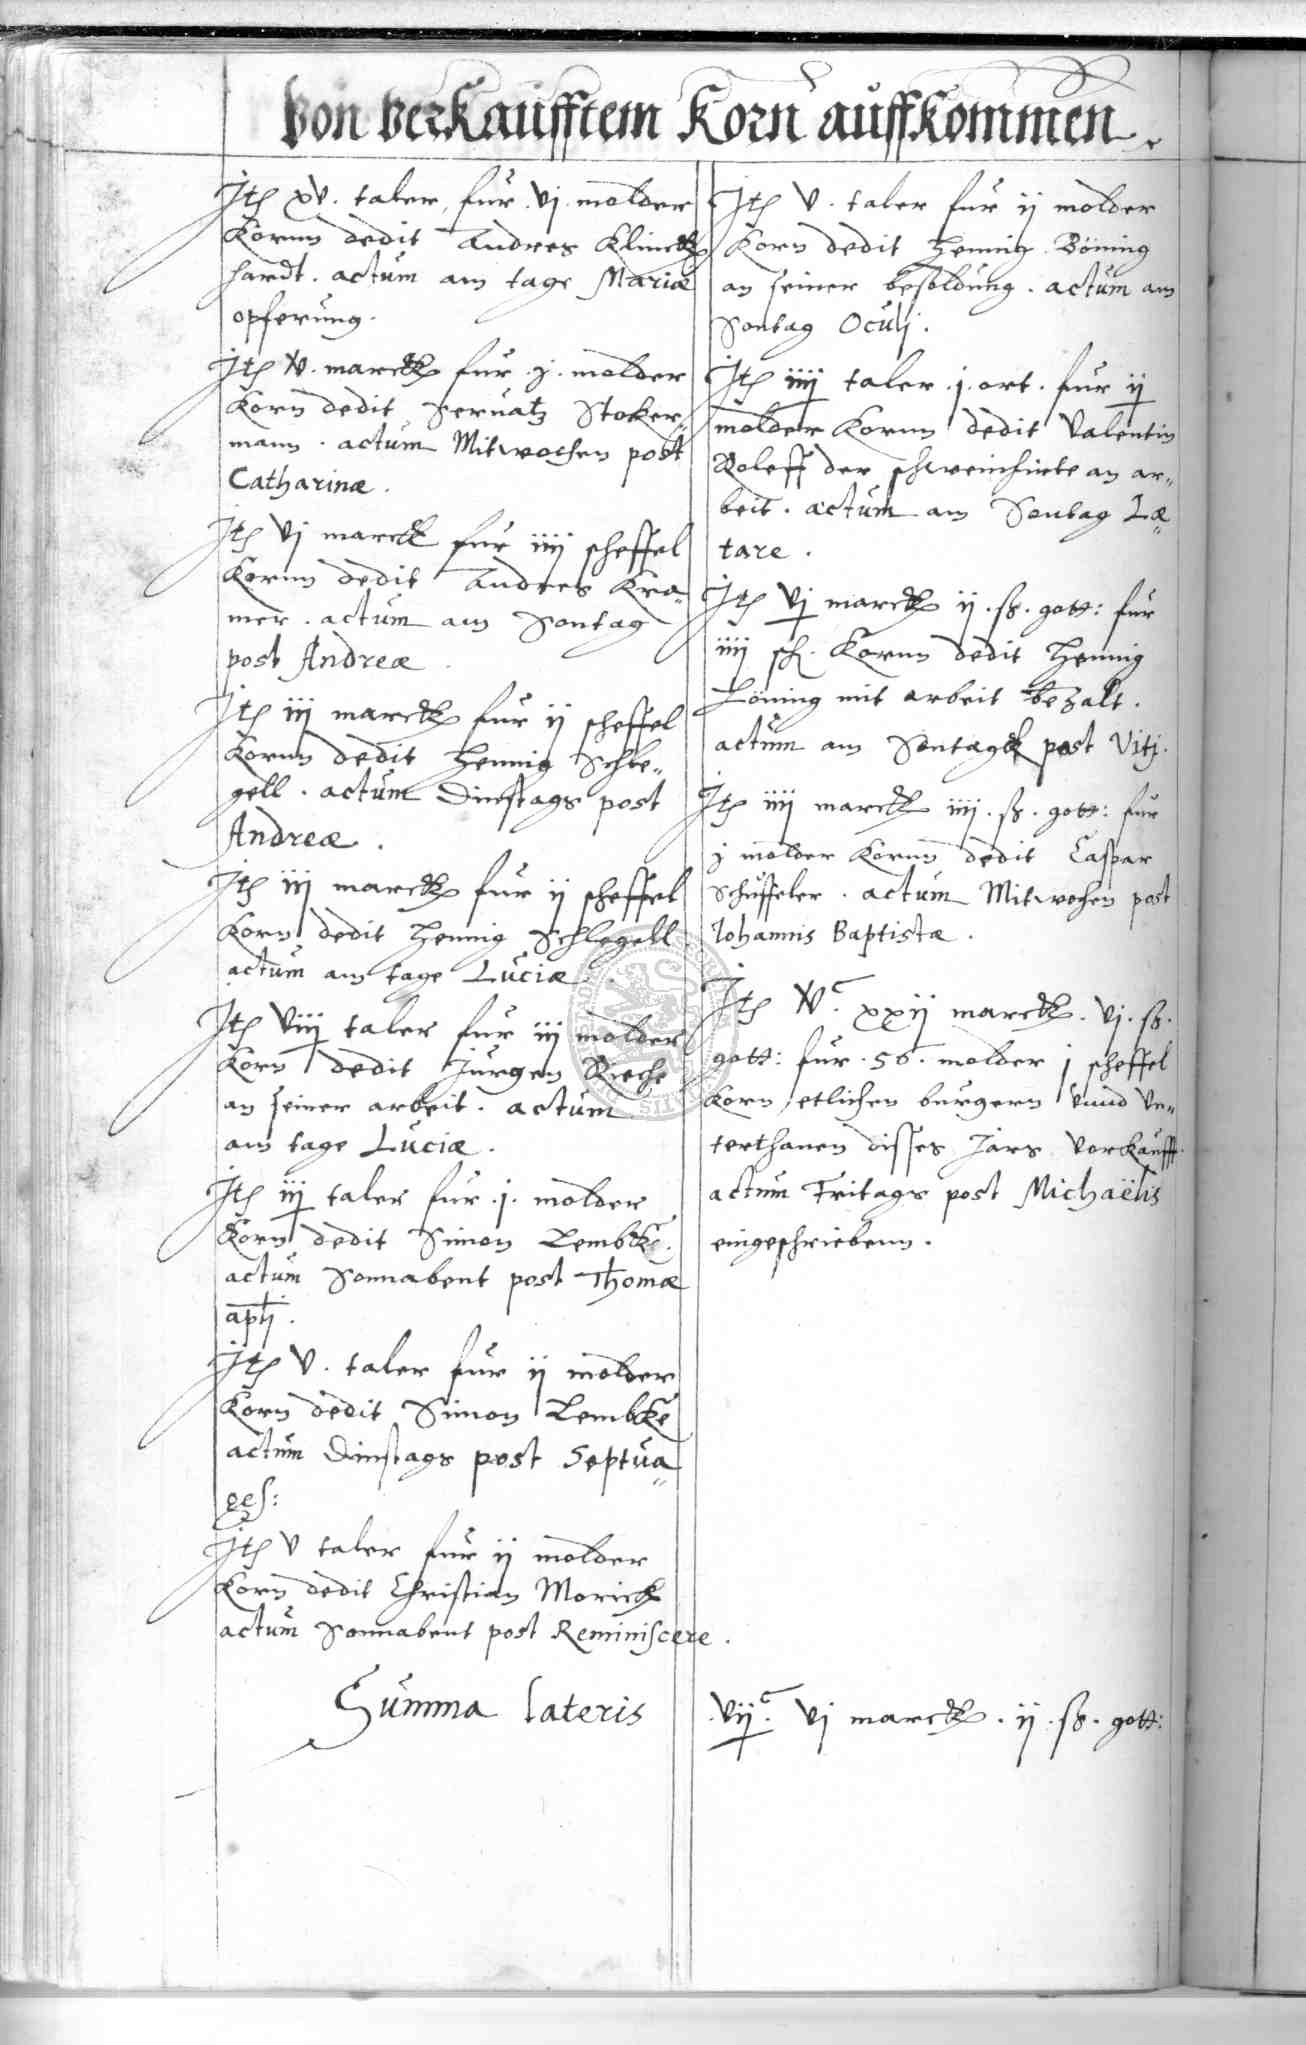 Von verkaufftem Korn auffkommen.
Jtē xv. taler, fur vj. molder
Kornn dedit Andres Klinck
hardt. actum am tage Mariæ
opferung.
Jtē v. marck fur .j. molder
Korn dedit Seruatz Stoker„
mann. actum Mitwochen post
Catharinæ.
Jtē vj marck fur iiij scheffel
Kornn dedit Andres Kra„
mer. actum am Sontag
post Andreæ
Jtē iij marck fur ij scheffel
Kornn dedit Hennig Schle„
gell. actum Dinstags post
Andreæ.
Jtē iij marck fur ij scheffel
Korn dedit Hennig Schlegell
actum am tage Luciæ.
Jtē viij taler fur iij molder
Korn dedit Jurgen Rieche
an seiner arbeit. actum
am tage Luciæ.
Jtē iij taler fur .j. molder
Korn dedit Simon Lembke.
actum Sonnabent post Thomæ
aptj.
Jtē v. taler fur ij molder
Korn dedit Simon Lembke
actum Dinstags post Septua„
ges:
Jtē v taler fur ij molder
Korn dedit Christian Morick
actum Sonnabent post Reminiscere.
Jtē v. taler fur ij molder
Korn dedit Hennig Böning
an seiner besoldung. actum am
Sontag Oculj.
Jtē iiij taler .j. ort. fur ij
molder Kornn dedit Valentin
Roleff der schweinhirte an ar„
beit. actum am Sontag Læ„
tare.
Jtē vj marck ij. ß. gott: fur
iiij sch. Kornn dedit Hennig
Löning mit arbeit bezalt.
actum am Sontagk post Vitj.
Jtē iiij marck iiij. ß. gott: fur
j molder Kornn dedit Caspar
Schüffeler. actum Mitwochen post
Iohannis Baptistæ.
Jtē vᶜ. xxij marck. vj. ß.
gott: fur .56. molder j scheffel
Korn, etlichen burgern vnnd vn„
terthanen disses Jars vorkaufft.
actum Fritags post Michaëlis
eingeschriebenn.
Summa lateris vijᶜ. vj marck. ij. ß. gott: